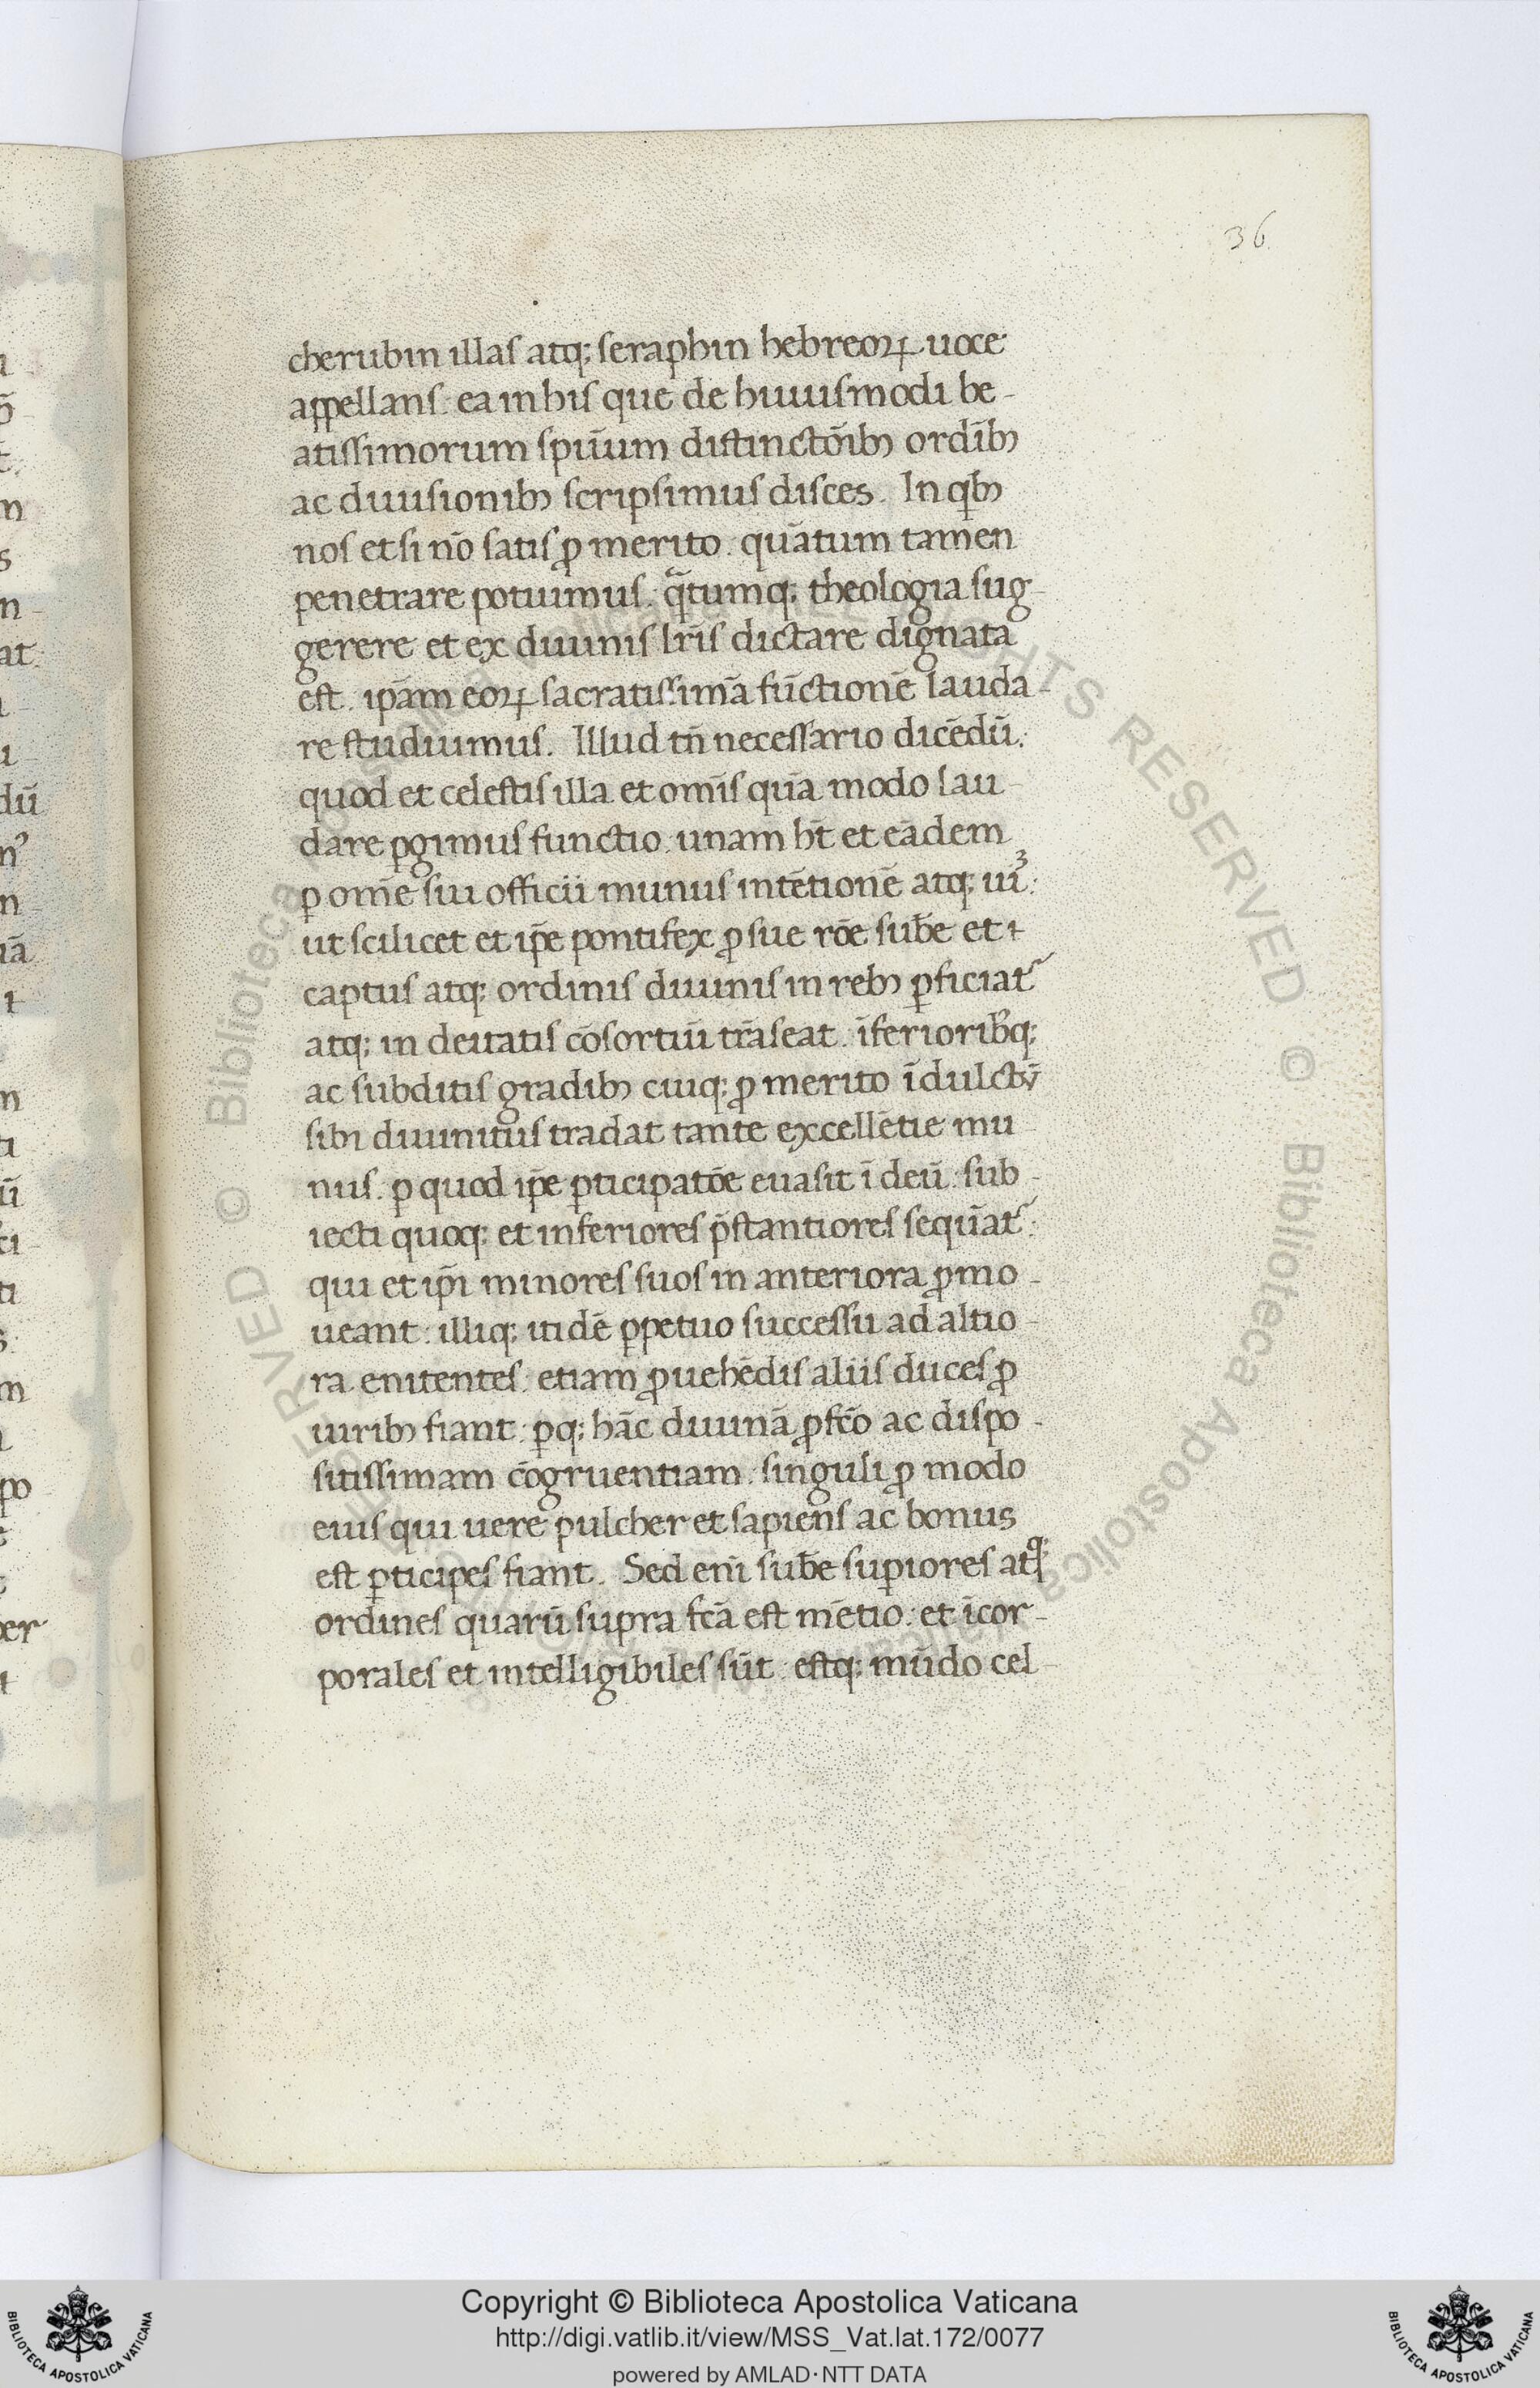 36
cherubin illas atq; seraphin hebreoꝝ uoce
appellans. ea in his que de huiusmodi be-
atissimorum spūum distinctōib9 ordīb9
ac diuisionib9 scripsimus disces. In qb9
nos etsi nō satis ꝓ merito. quātum tamen
penetrare potuimus. q̃tumq; theologia sug-
gerere et ex diuinis lr̄is dictare dignata
est. ip̄am eoꝝ sacratissimā fūctionē lauda-
re studuimus. Illud tn̄ necessario dicēdū.
quod et celestis illa et omīs quā modo lau-
dare ꝑgimus functio. unam h̄t et eādem
ꝑ om̄e sui officii munus intētionē atq; uiꝫ:
ut scilicet et ip̄e pontifex ꝓ sue rōe sub̄e et ī
captus atq; ordinis diuinis in reb9 ꝑficiat᷑
atq; in deitatis cōsortiū trāseat. īferiorib9q;
ac subditis gradib9 cuiq; ꝓ merito īdultū
sibi diuinitus tradat tante excellētie mu-
nus. ꝑ quod ip̄e ꝑticipatōe euasit ī deū. sub-
iecti quoq; et inferiores p̄stantiores sequāt᷑:
qui et ip̄i minores suos in anteriora ꝓmo-
ueant. illiq; itidē ꝑpetuo successu ad altio-
ra enitentes. etiam ꝓuehēdis aliis duces ꝓ
uirib9 fiant. ꝑq; hāc diuinā ꝓfcō ac dispo-
sitissimam cōgruentiam. singuli ꝓ modo
eius qui uere pulcher et sapiens ac bonus
est ꝑticipes fiant. Sed eni sub̄e suꝑiores atq;
ordines quarū supra fcā est mētio. et īcor-
porales et intelligibiles sūt. estq; mūdo cel-
Copyright © Biblioteca Apostolica Vaticana
http://digi.vatlib.it/view/MSS_Vat.lat.172/0077
powered by AMLAD·NTT DATA
BIBLIOTECA APOSTOLICA VATICANA
BIBLIOTECA APOSTOLICA VATICANA